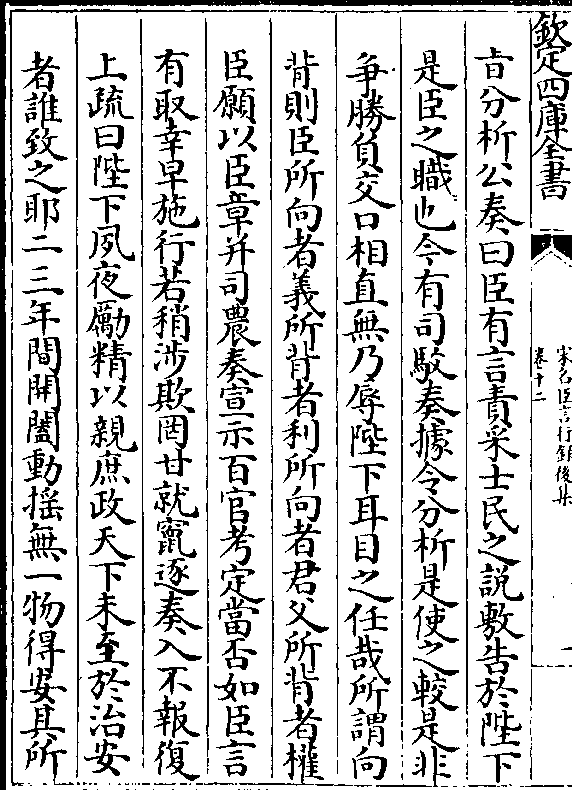 欽定四庫全書
宋名臣言行録後集
卷十二
旨分析公奏曰臣有言責采士民之説敷告於陛下
是臣之職也今有司駮奏據令分析是使之較是非
爭勝負交口相直無乃辱陛下耳目之任哉所謂向
背則臣所向者義所背者利所向者君父所背者權
臣願以臣章并司農奏宣示百官考定當否如臣言
有取幸早施行若稍涉欺罔甘就竄逐奏入不報復
上疏曰陛下夙夜勵精以親庶政天下未至於治安
者誰致之耶二三年間開闔動揺無一物得安其所